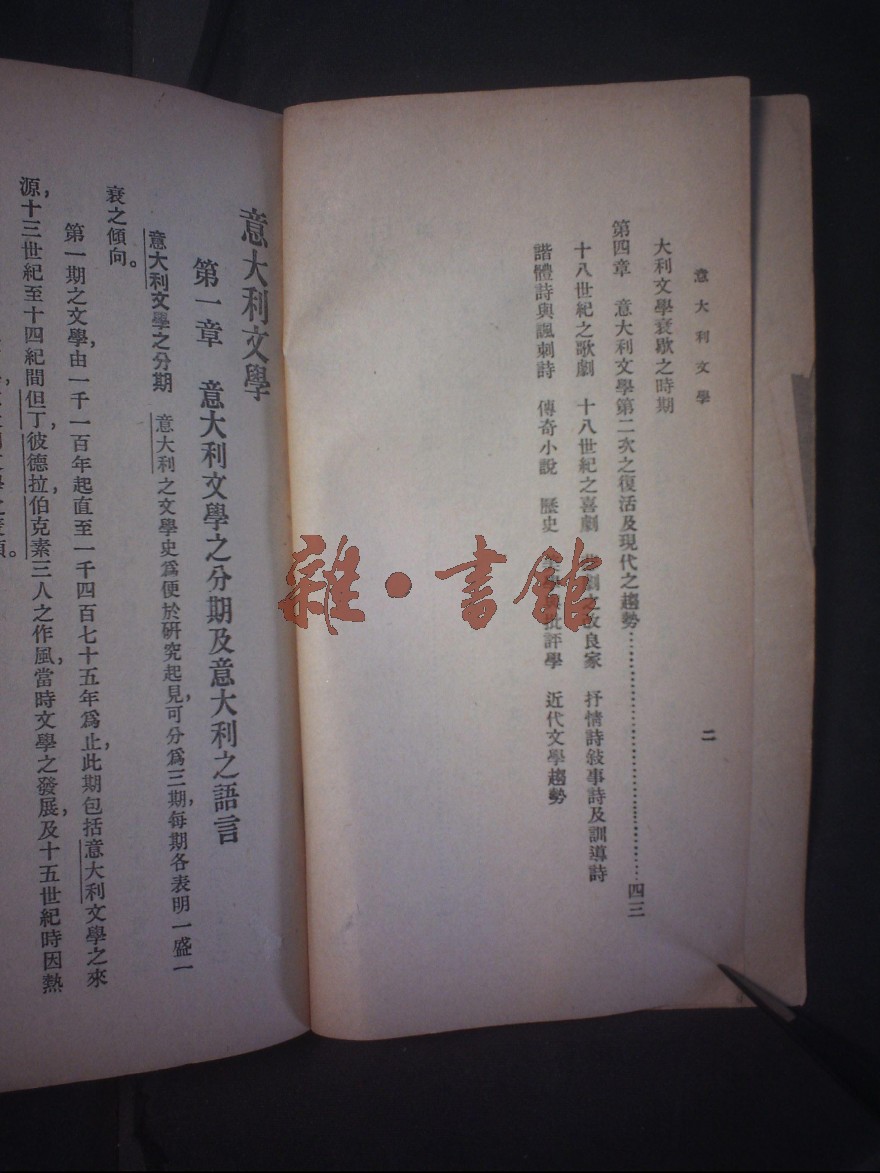 意大利文學
二
大利文學衰歇之時期
第四章　意大利文學第二次之復活及現代之趨勢……四三
十八世紀之歌劇　十八世紀之喜劇　劇之改良家　抒情詩敍事詩及訓導詩
諧體詩與諷刺詩　傳奇小說　歷史　批評學　近代文學趨勢
雜·書館
意大利文學
第一章　意大利文學之分期及意大利之語言
意大利文學之分期　意大利之文學史爲便於硏究起見，可分爲三期，每期各表明一盛一
衰之傾向。
第一期之文學，由一千一百年起直至一千四百七十五年爲止，此期包括意大利文學之來
源，十三世紀至十四紀間但丁，彼德拉，伯克素三人之作風，當時文學之發展，及十五世紀時因熱